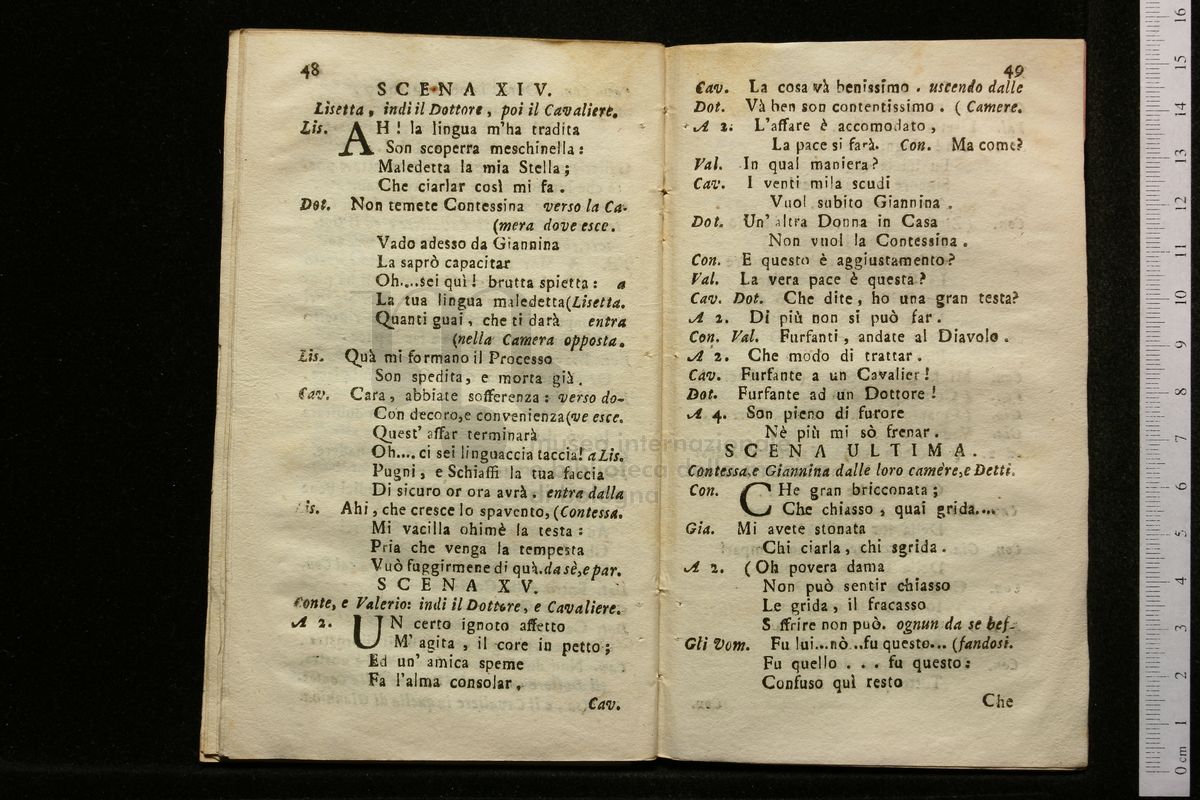 48
SCENA XIV.
Lisetta, indi il Dottore, poi il Cavaliere.
Lis. AH! la lingua m'ha tradita
Son scoperra meschinella:
Maledetta la mia Stella;
Che ciarlar così mi fa.
Dot. Non temete Contessina verso la Ca-
(mera dove esce.
Vado adesso da Giannina
La saprò capacitar
Oh....sei quì! brutta spietta: a
La tua lingua maledetta (Lisetta.
Quanti guai, che ti darà entra
(nella Camera opposta.
Lis. Quà mi formano il Processo
Son spedita, e morta già.
Cav. Cara, abbiate sofferenza: verso do-
Con decoro, e convenienza (ve esce.
Quest' affar terminarà
Oh.... ci sei linguaccia taccia! a Lis.
Pugni, e Schiaffi la tua faccia
Di sicuro or ora avrà. entra dalla
Lis. Ahi, che cresce lo spavento, (Contessa.
Mi vacilla ohimè la testa:
Pria che venga la tempesta
Vuò fuggirmene di quà. da sè, e par.
SCENA XV.
Conte, e Valerio: indi il Dottore, e Cavaliere.
A 2. UN certo ignoto affetto
M' agita, il core in petto;
Ed un' amica speme
Fa l'alma consolar,
Cav.
49
Cav. La cosa và benissimo. uscendo dalle
Dot. Và ben son contentissimo. (Camere.
A 2. L'affare è accomodato,
La pace si farà. Con. Ma come?
Val. In qual maniera?
Cav. I venti mila scudi
Vuol subito Giannina.
Dot. Un' altra Donna in Casa
Non vuol la Contessina.
Con. E questo è aggiustamento?
Val. La vera pace è questa?
Cav. Dot. Che dite, ho una gran testa?
A 2. Di più non si può far.
Con. Val. Furfanti, andate al Diavolo.
A 2. Che modo di trattar.
Cav. Furfante a un Cavalier!
Dot. Furfante ad un Dottore!
A 4. Son pieno di furore
Nè più mi sò frenar.
SCENA ULTIMA.
Contessa, e Giannina dalle loro camère, e Detti.
Con. CHe gran bricconata;
Che chiasso, quai grida....
Gia. Mi avete stonata
Chi ciarla, chi sgrida.
A 2. (Oh povera dama
Non può sentir chiasso
Le grida, il fracasso
S ffrire non può. ognun da se bef-
Gli Vom. Fu lui...nò..fu questo... (fandosi.
Fu quello... fu questo:
Confuso quì resto
Che
museo internazionale